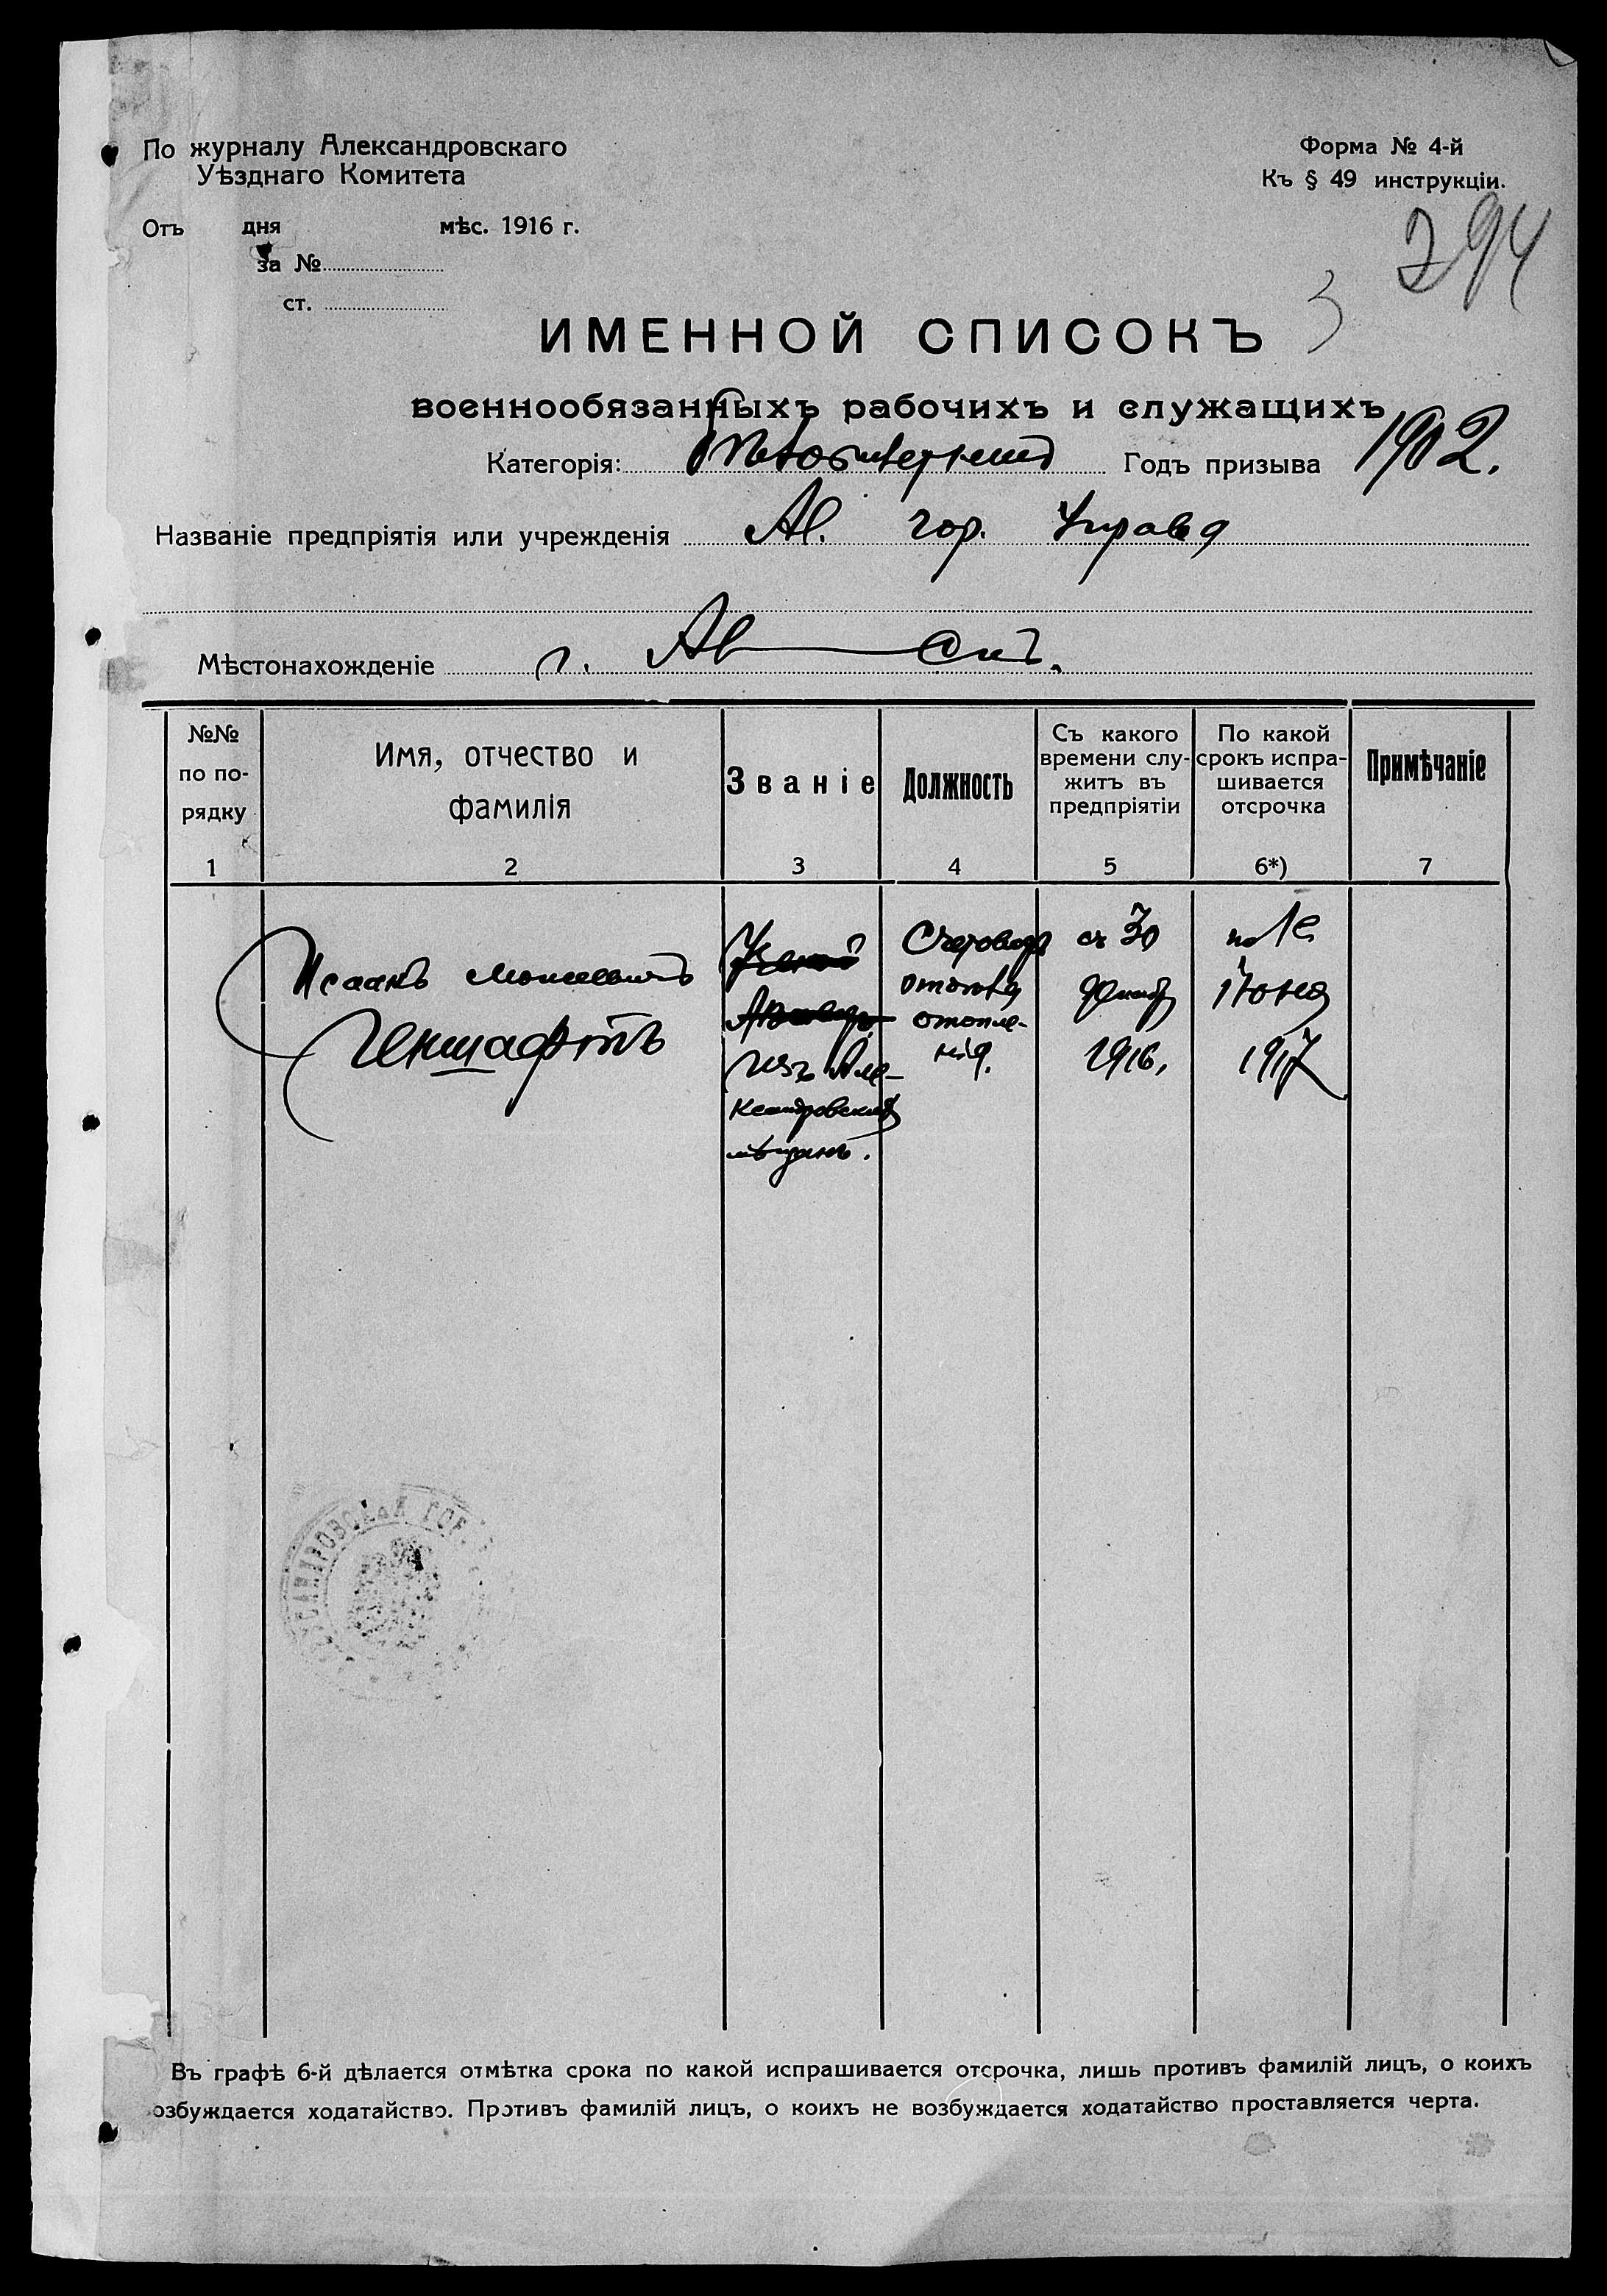 По журналу Александровскаго
Уѣзднаго Комитета
Отъ дня мѣс. 1916 г.
за №
ст.
Форма № 4-й
Къ § 49 инструкціи.
294
3
ИМЕННОЙ СПИСОКЪ
военнообязанныхъ рабочихъ и служащихъ
Категорія: Годъ призыва 1902.
Названіе предпріятія или учрежденія Ал. гор. Управа
Мѣстонахожденіе г. Ал—скъ.
№№ по по-рядку
Имя, отчество и фамилія
Званіе
Должность
Съ какого времени слу-житъ въ предпріятіи
По какой срокъ испра-шивается отсрочка
Примѣчаніе
1 2 3 4 5 6*) 7
Исаакъ Моисеевичъ
Геншафтъ
изъ Але-
ксандровскихъ
мѣщанъ.
Счетоводъ
отдѣла
отопле-
нія.
съ 30
декабр
1916,
по 1е
Іюня
1917
САНДРОВСКАЯ ГОР
Въ графѣ 6-й дѣлается отмѣтка срока по какой испрашивается отсрочка, лишь противъ фамилій лицъ, о коихъ
озбуждается ходатайство. Противъ фамилій лицъ, о коихъ не возбуждается ходатайство проставляется черта.